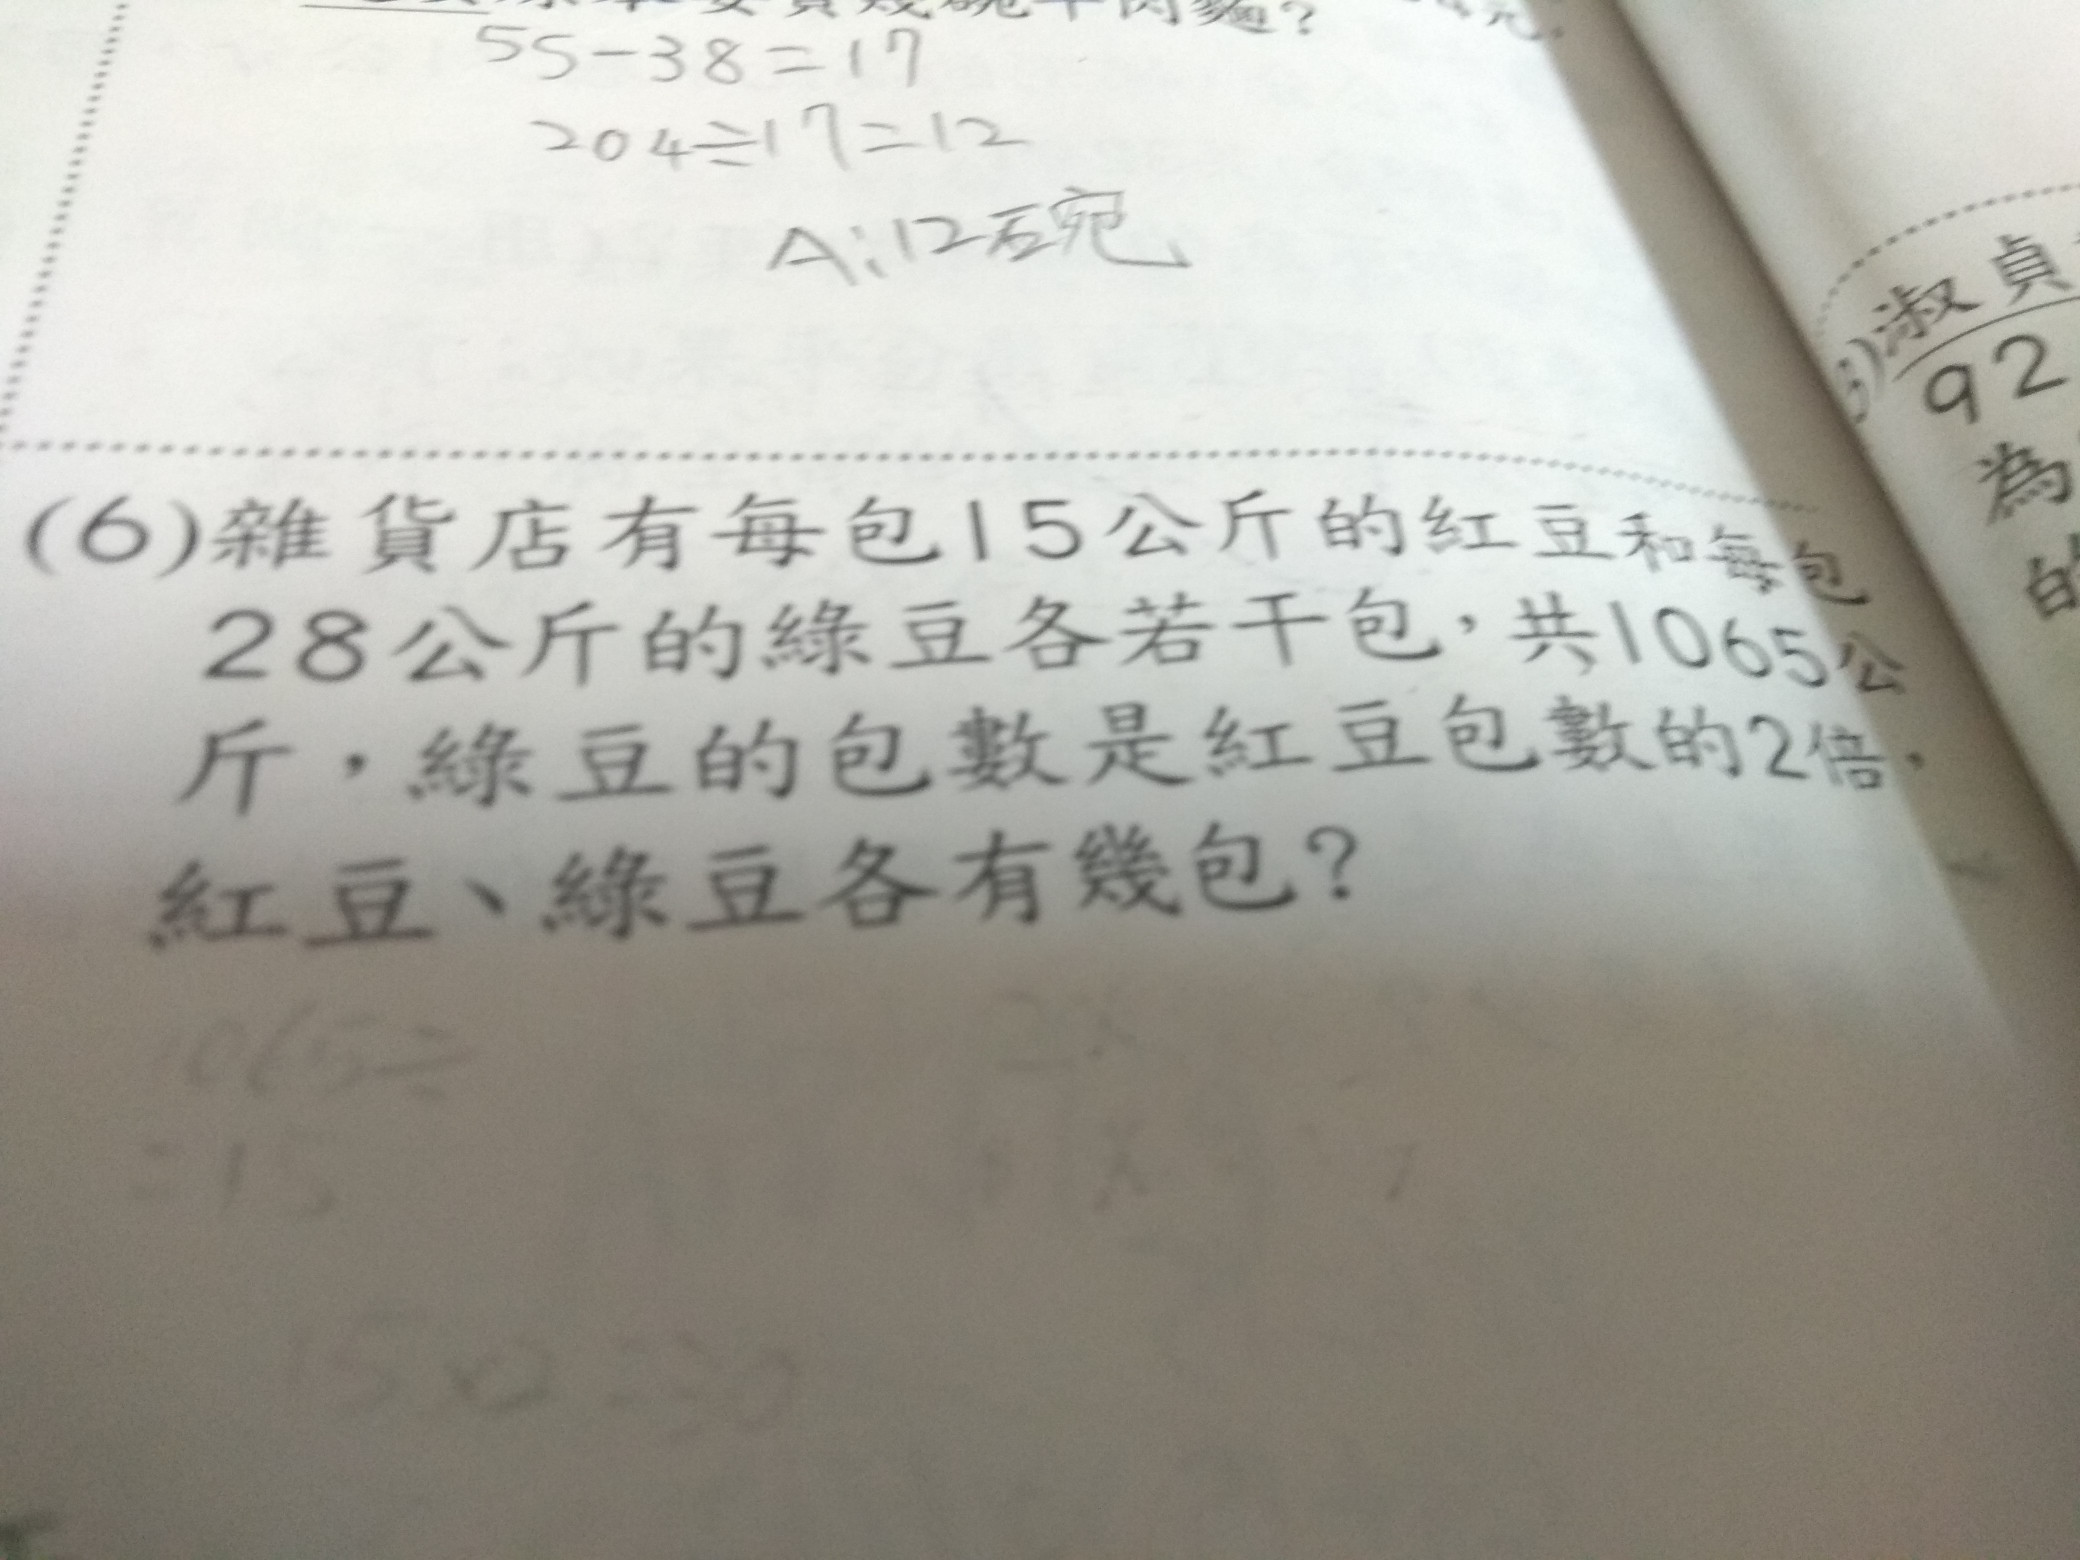 55-38=17
204÷17=12
A:12碗
(6)雜貨店有每包15公斤的紅豆和每包
28公斤的綠豆各若干包，共1065公
斤，綠豆的包數是紅豆包數的2倍，
紅豆、綠豆各有幾包？
15×2=30
淑貞
92
為
的